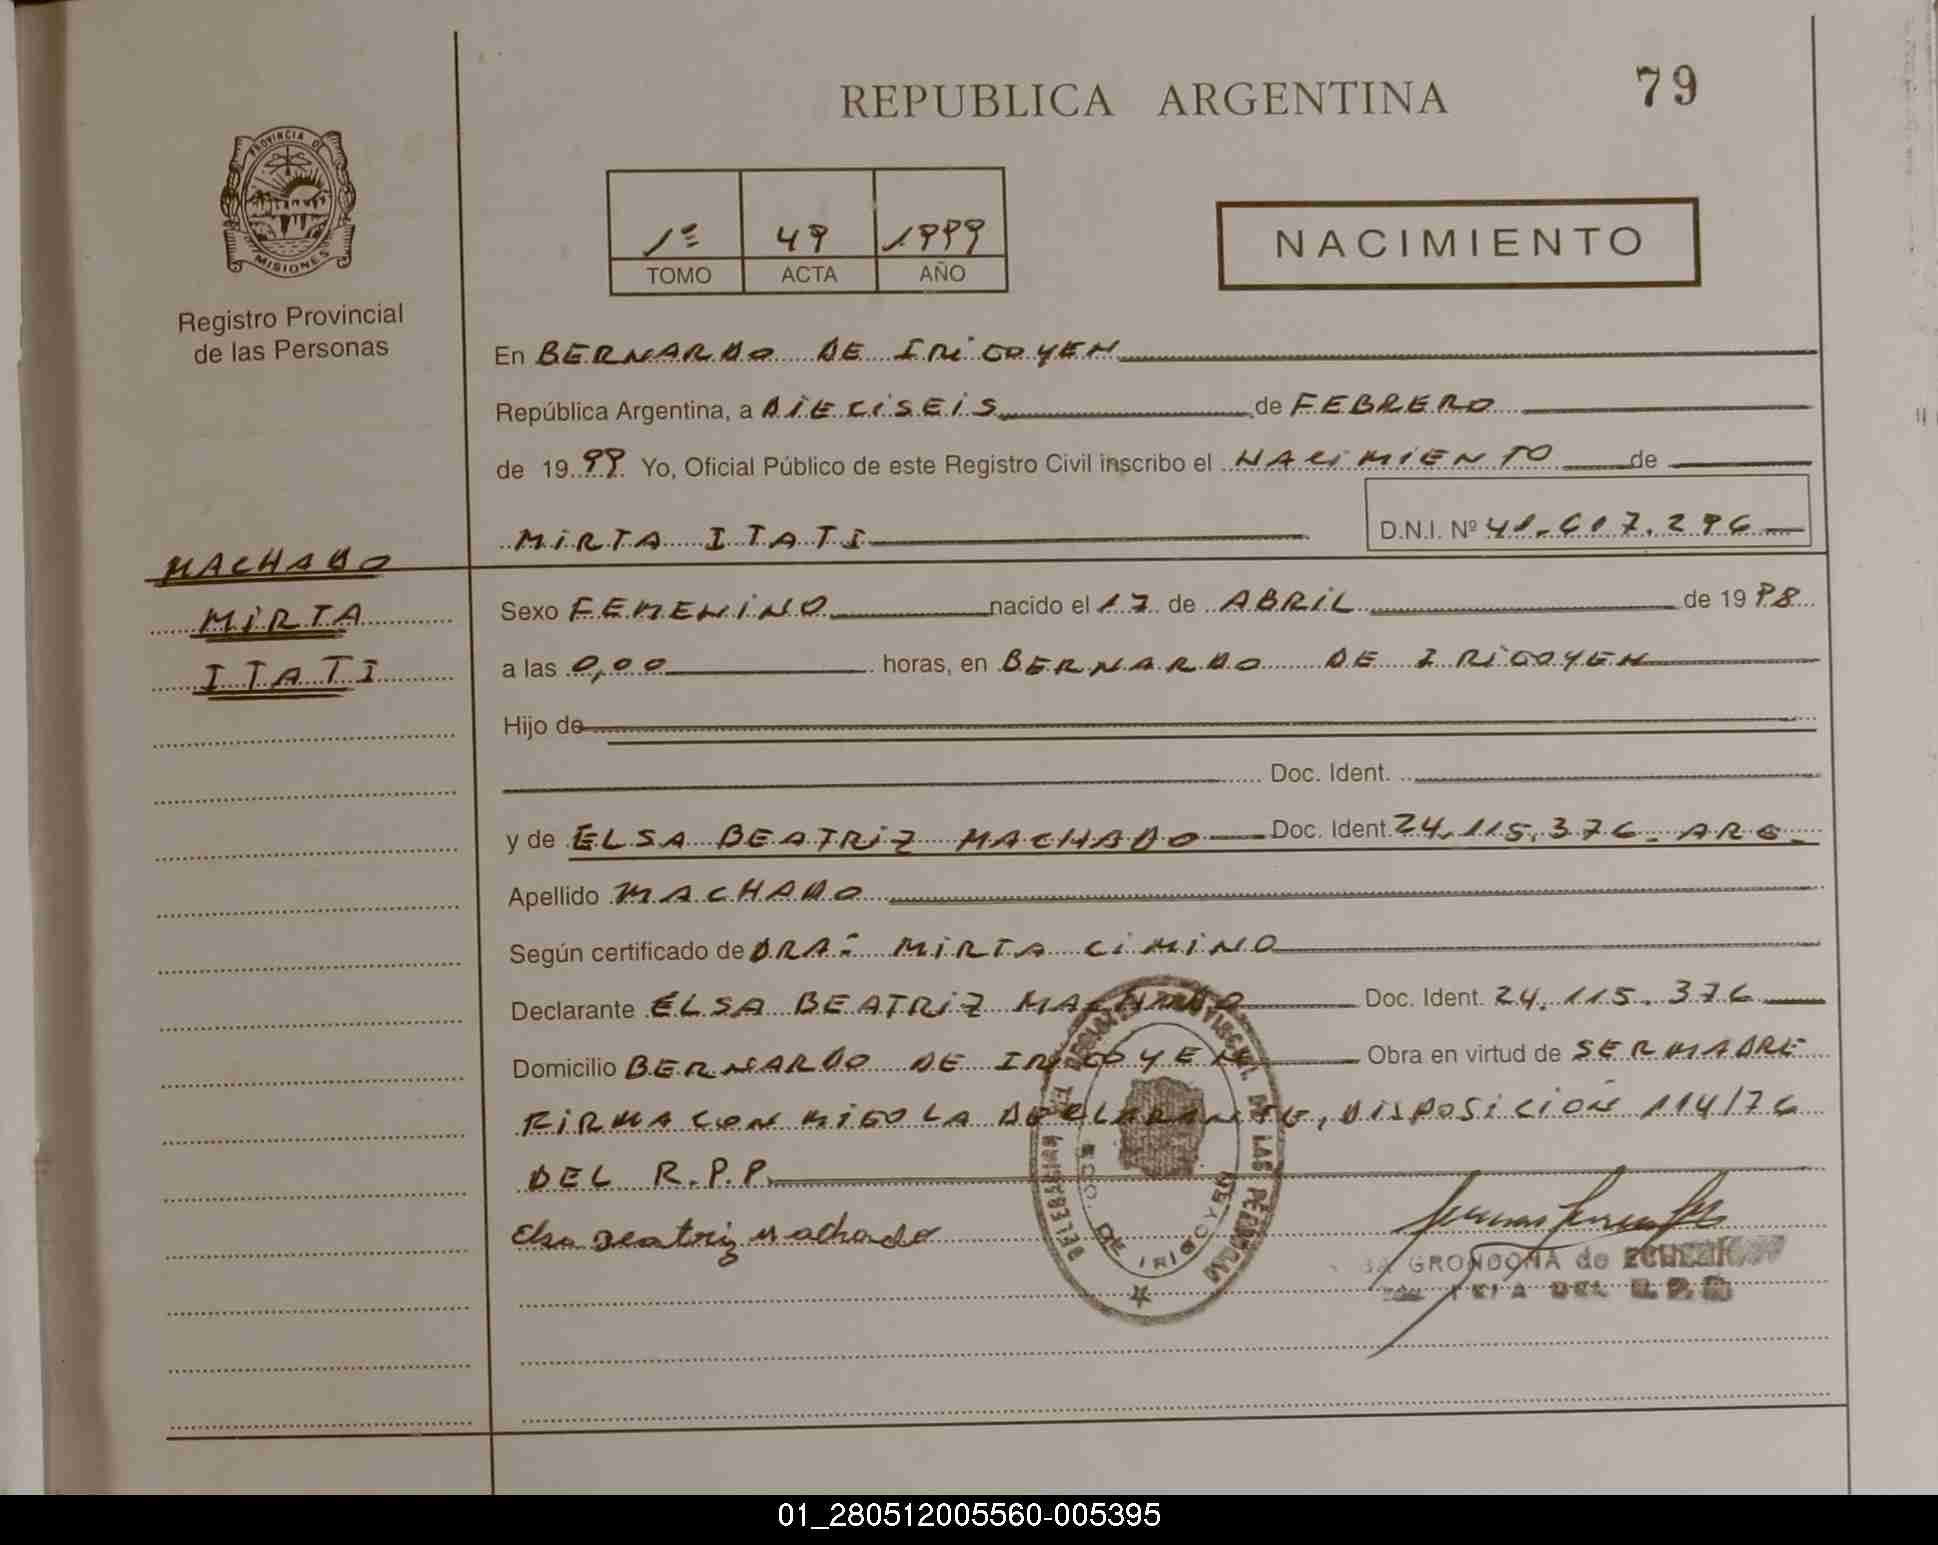 REPUBLICA ARGENTINA
79
PROVINCIA DE
MISIONES
Registro Provincial
de las Personas
1º 49 1999
TOMO ACTA AÑO
NACIMIENTO
En BERNARDO DE IRIGOYEN
República Argentina, a DIECISEIS de FEBRERO
de 19 99 Yo, Oficial Público de este Registro Civil inscribo el NACIMIENTO de
MIRTA ITATI D.N.I. Nº 41.617.296
MACHADO
MIRTA
ITATI
Sexo FEMENINO nacido el 17 de ABRIL de 19 98
a las 0,00 horas, en BERNARDO DE IRIGOYEN
Hijo de
Doc. Ident.
y de ELSA BEATRIZ MACHADO Doc. Ident. 24.115.376. ARG.
Apellido MACHADO
Según certificado de DRA: MIRTA CIMINO
Declarante ELSA BEATRIZ MACHADO Doc. Ident. 24.115.376
Domicilio BERNARDO DE IRIGOYEN Obra en virtud de SER MADRE
FIRMA CONMIGO LA DECLARANTE, DISPOSICIÓN 114/76
DEL R.P.P.
Elsa Beatriz Machado
DE LAS PERSONAS
BDO. DE IRIGOYEN
GRONDONA de
DEL R.P.P.
01_280512005560-005395